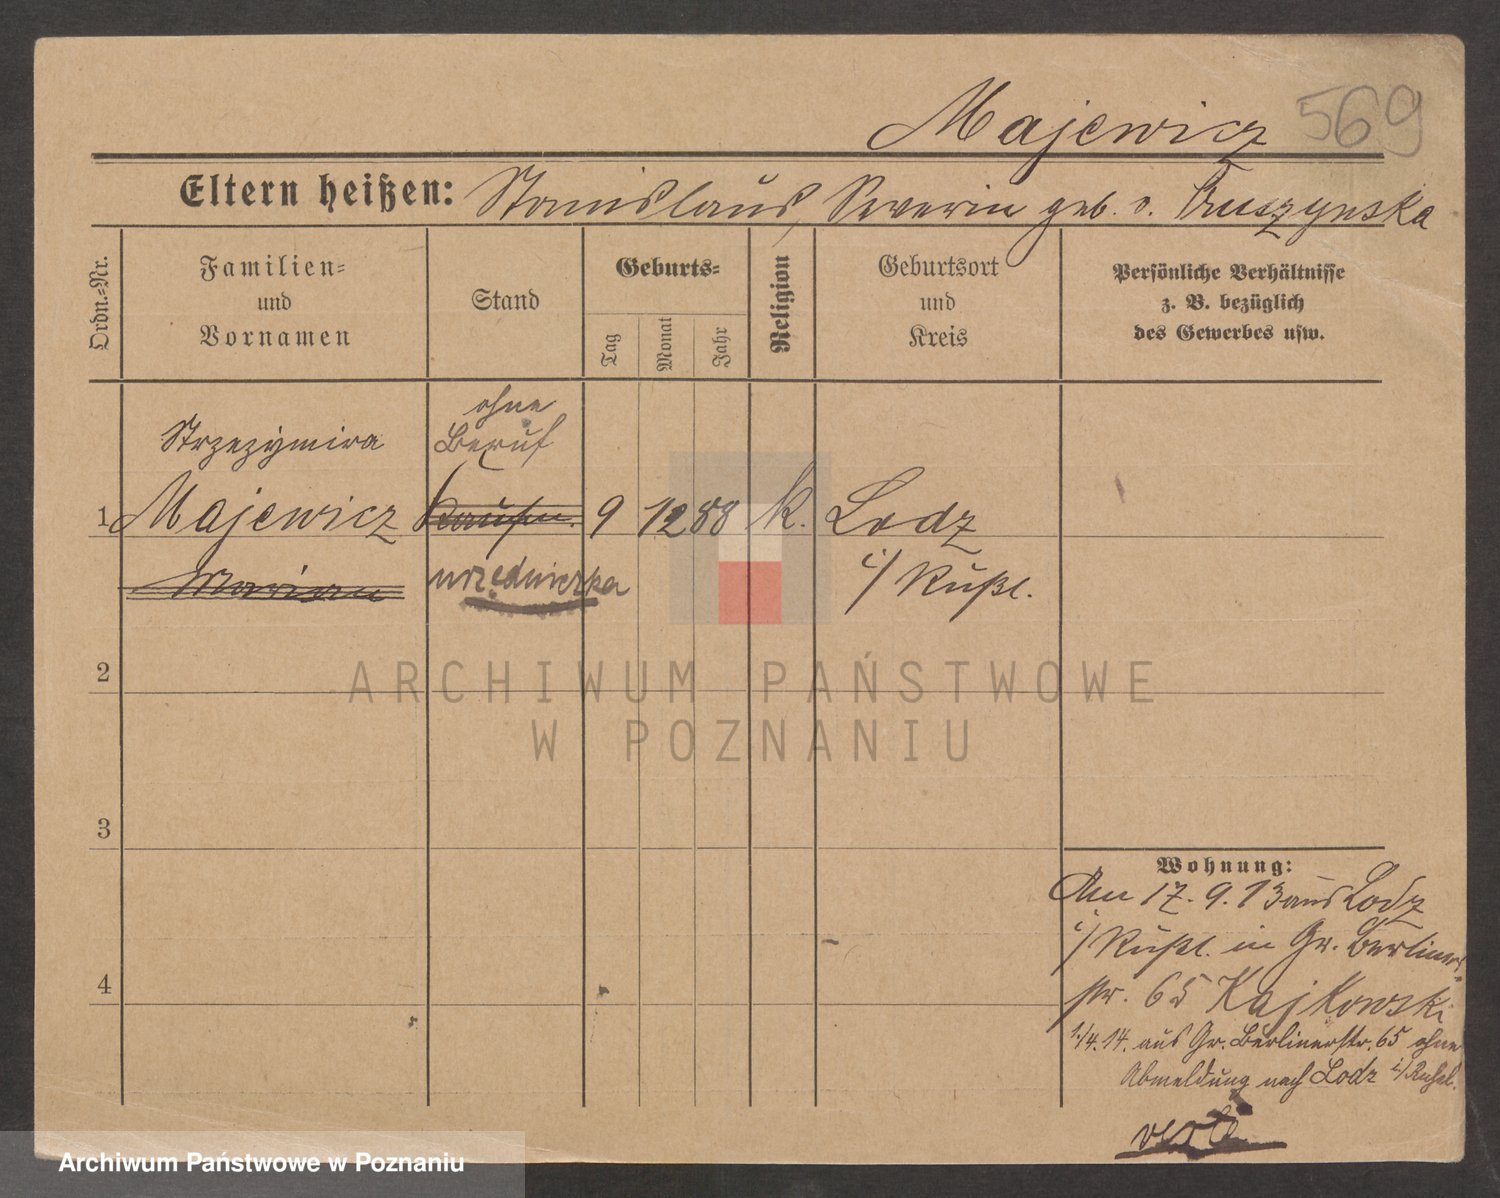 Majewicz 569
Eltern heißen: Stanislaus, Severin geb. v. Ruszynska
Ordn.-Nr.
Familien-
und
Vornamen
Stand
Geburts-
Tag
Monat
Jahr
Religion
Geburtsort
und
Kreis
Persönliche Verhältnisse
z. B. bezüglich
des Gewerbes usw.
ohne
Strzezymira Beruf
1 Majewicz Kaufm. 9 12 88 k. Lodz
Marian urzędniczka i/ Rußl.
2
ARCHIWUM PAŃSTWOWE
W POZNANIU
3
Wohnung:
Am 17.9.13 aus Lodz
i/ Rußl. in Gr. Berliner-
4
str. 65 Kajkowski
1./4.14. aus Gr. Berlinerstr. 65 ohne
Abmeldung nach Lodz i/ Rußl.
Archiwum Państwowe w Poznaniu